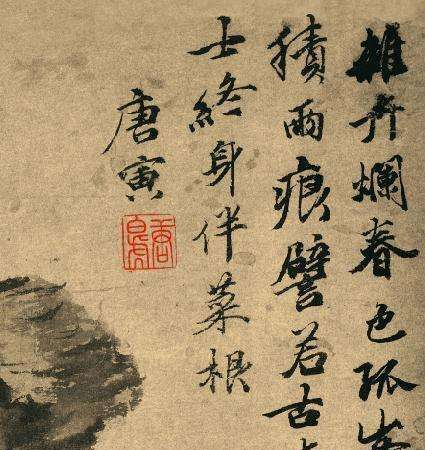 雜卉爛春色孤
積雨痕譬若古
士終身伴菜根
唐寅